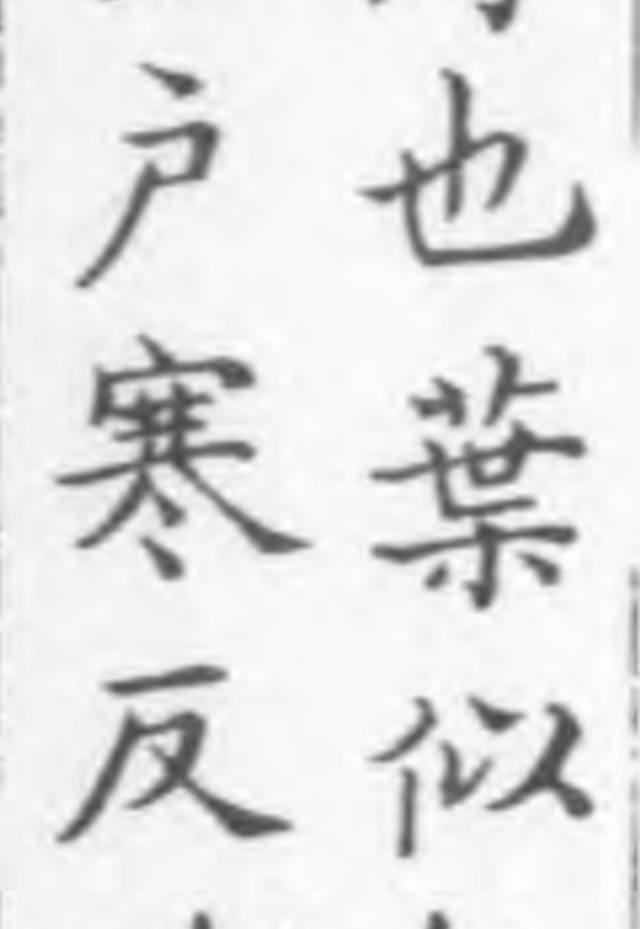 也葉似
戶寒反